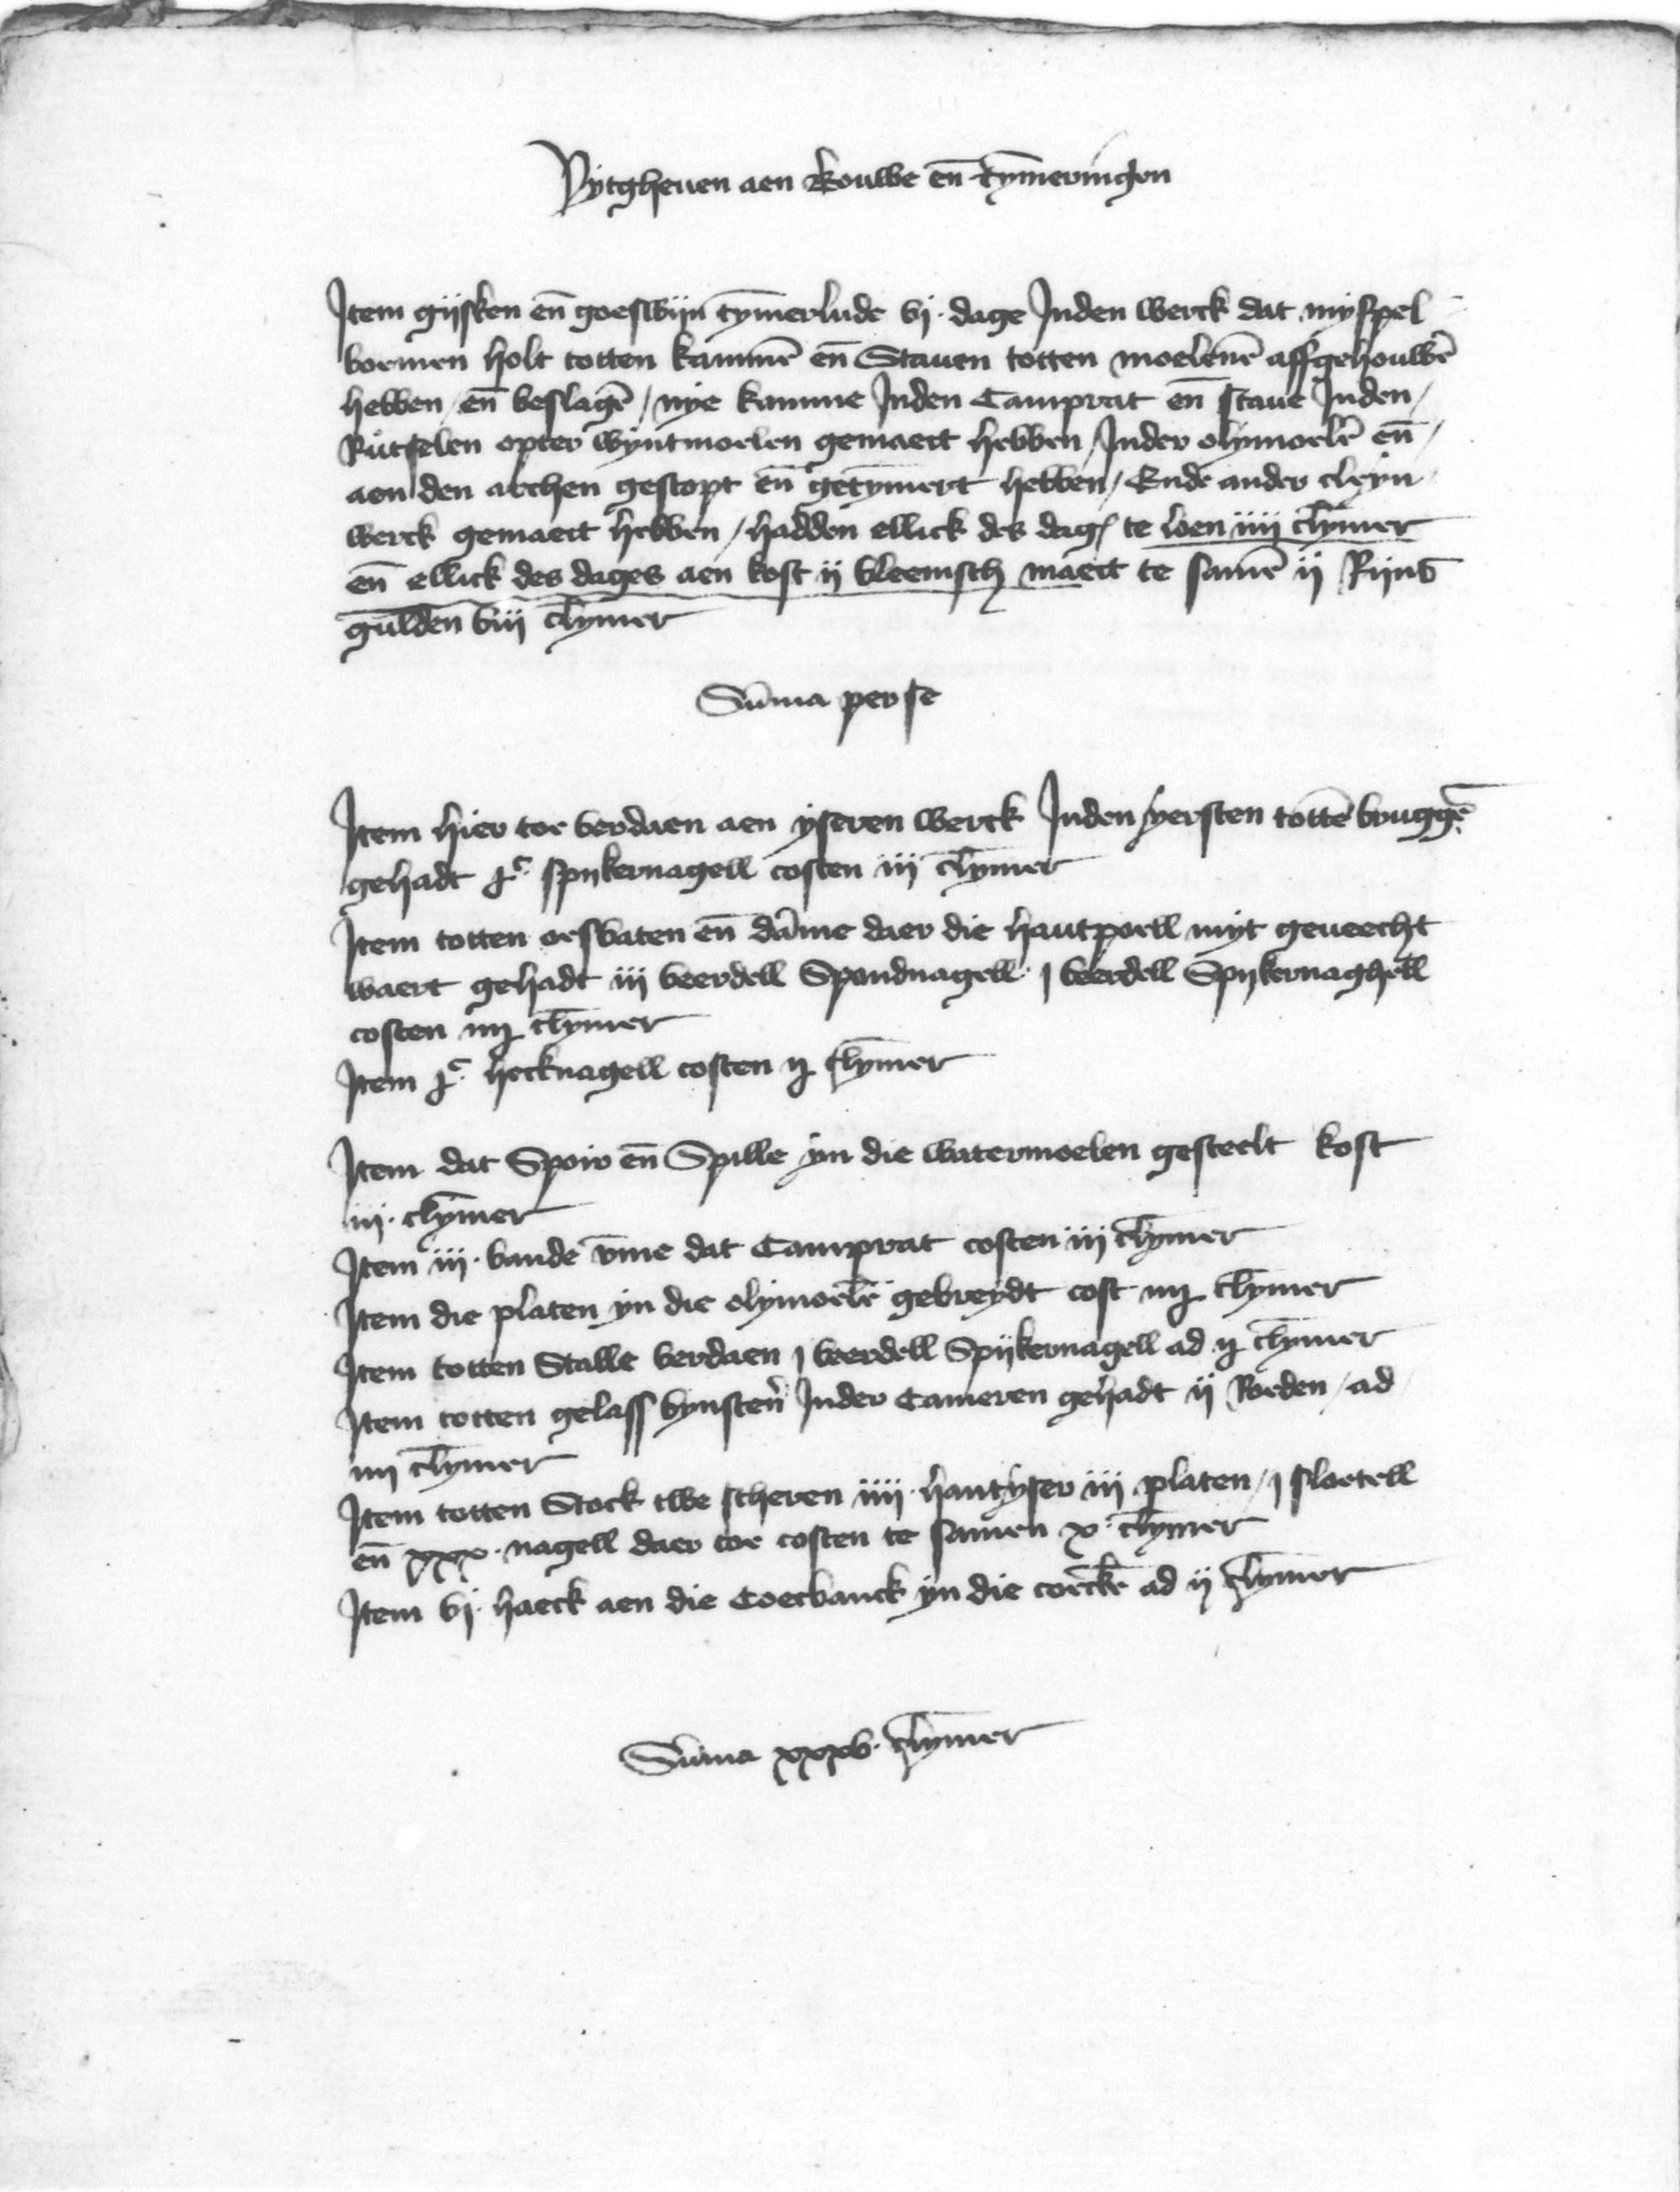 Vytgheuen aen Rouwe en̄ tȳmeringen
Item gijsken en̄ goeswijn tȳmerlude vj · dage Inden werck dat myspel
boemen holt totten kammē en̄ Stauen totten moelenē affgehouwē
hebben / en̄ beslagē / nye kamme Inden Camprat en̄ staue Inden /
Rutselen opter wyntmoelen gemaect hebben / Inder olymoelē en̄ /
aen den archen gestopt en̄ getȳmert hebben / Ende ander cleyn
werck gemaect hebben / hadden ellick des dag te loen iiij clȳmer
en̄ ellick des dages aen kost ij vleemsch maect te samē ij Rijns
gulden viij clȳmer
Sūma per se
Item hier toe verdaen aen yseren werck Inden yersten tottē bruggē
gehadt jc spijkernagell costen iij clȳmer
Item totten orsvaten en̄ dāme daer die hautpoell myt geueecht
waert gehadt iij veerdell Spondnagell · j veerdell Spijkernaghell
costen clȳmer
Item jc hecknagell costen clȳmer
Item dat Spoir en̄ Spille yn die watermoelen gesteelt kost
iij · clȳmer
Item iij · bande v̄me dat Camprat costen iij clȳmer
Item die platen yn die olymoelē gebreydt cost clȳmer
Item totten Stalle verdaen j veerdell Spijkernagell ad clȳmer
Item totten gelass vynsteñ Inder Cameren gehadt ij Roeden / ad
iiij clȳmer
Item totten Stock twe scheren iiij · hantyser iij platen / j sloetell
en̄ xxx · nagell daer toe costen te samen x · clȳmer
Item vj · haeck aen die Coecbanck yn die coeckē ad ij clȳmer
Sūma xxxv · clȳmer